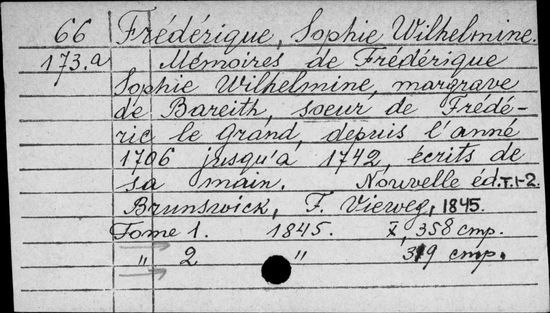 66 Frédérique, Sophie Wilhelmine.
173.a Mémoires de Frédérique
Sophie Wilhelmine, margrave
de Bareith, soeur de Frédé-
ric le Grand, depuis l'anné
1706 jusqu'a 1742, écrits de
sa main. Nouvelle éd.T.1-2.
Brunswick, F. Vieweg, 1845.
Tome 1. 1845. X, 358 cmp.
" 2 " 319 cmp.